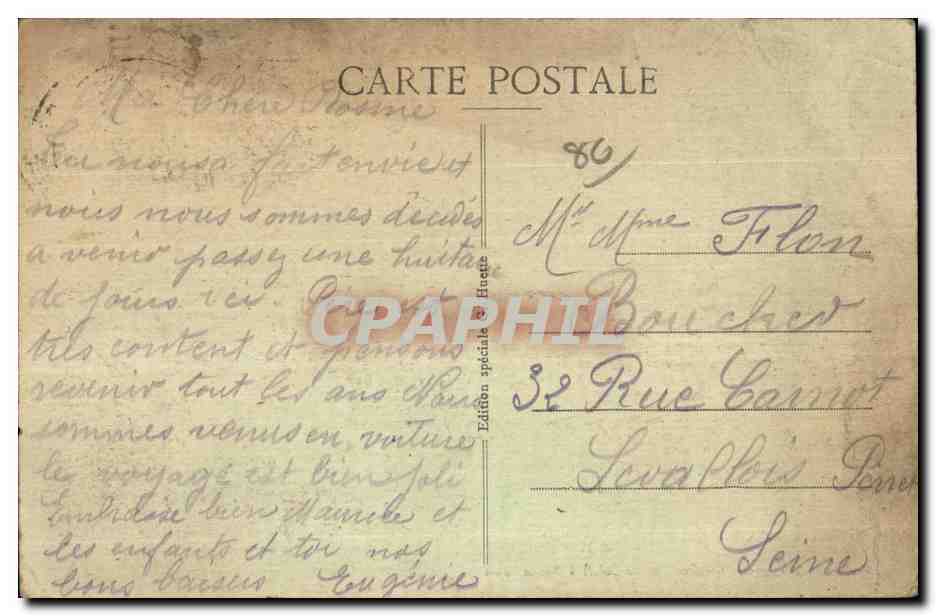 CARTE POSTALE
Ma Chère
nous fait envie et
nous nous sommes décidés
a venir passez une huitaine
de jours ici.
très content et pensons
revenir tout les ans Nous
sommes venus en voiture
le voyage est bien joli
Embrasse bien Maurice et
les enfants et toi nos
bons baisers Eugénie
Edition spéciale Huette
86
Mr Mme Flon
Boucher
32 Rue Carnot
Levallois Perret
Seine
CPAPHIL